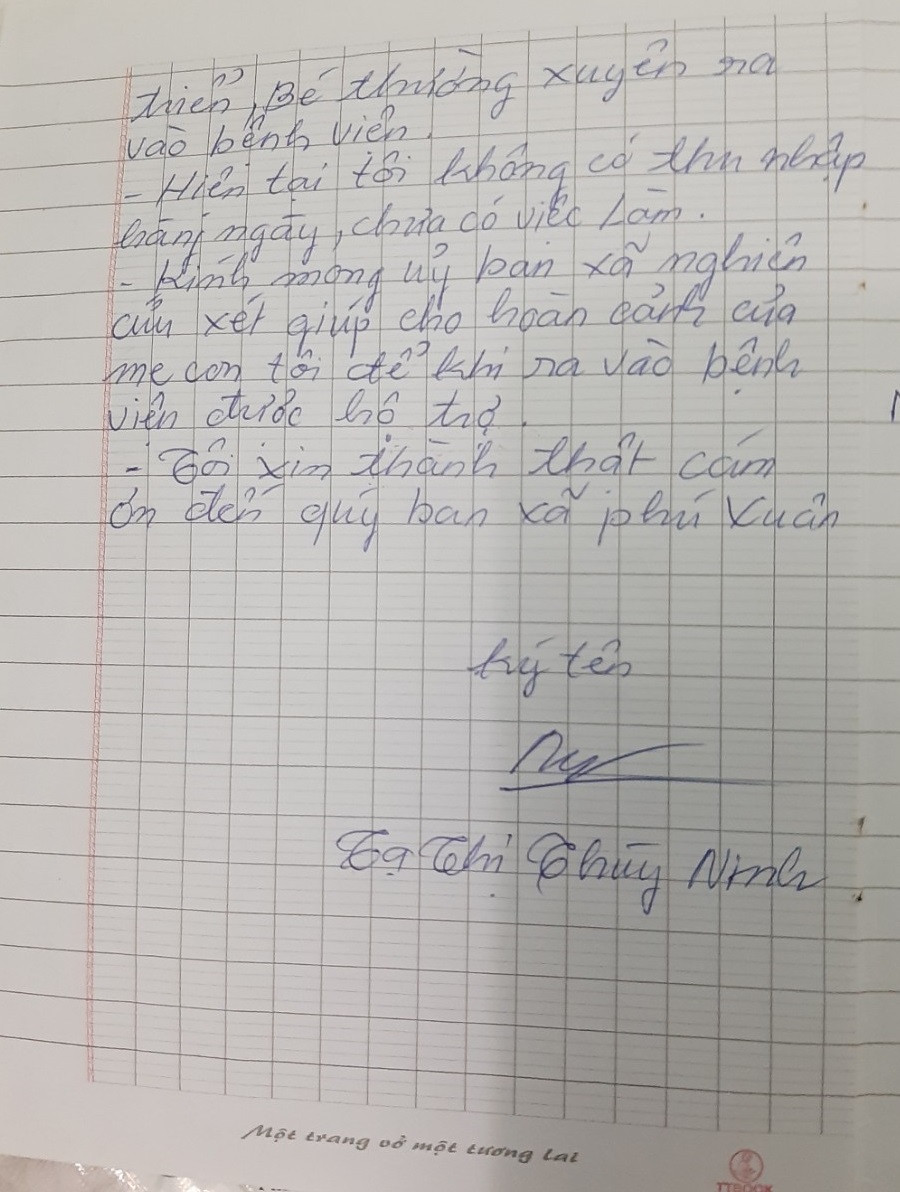 triển, Bé thường xuyên ra
vào bệnh viện.
- Hiện tại tôi không có thu nhập
hàng ngày, chưa có việc Làm.
- Kính mong uỷ ban xã nghiên
cứu xét giúp cho hoàn cảnh của
mẹ con tôi để khi ra vào bệnh
viện được hỗ trợ.
- Tôi xin thành thật cám
ơn đến quý ban xã phú Xuân
ký tên
Tạ Thị Thùy Ninh
Một trang vở một tương lai
TTBOOK